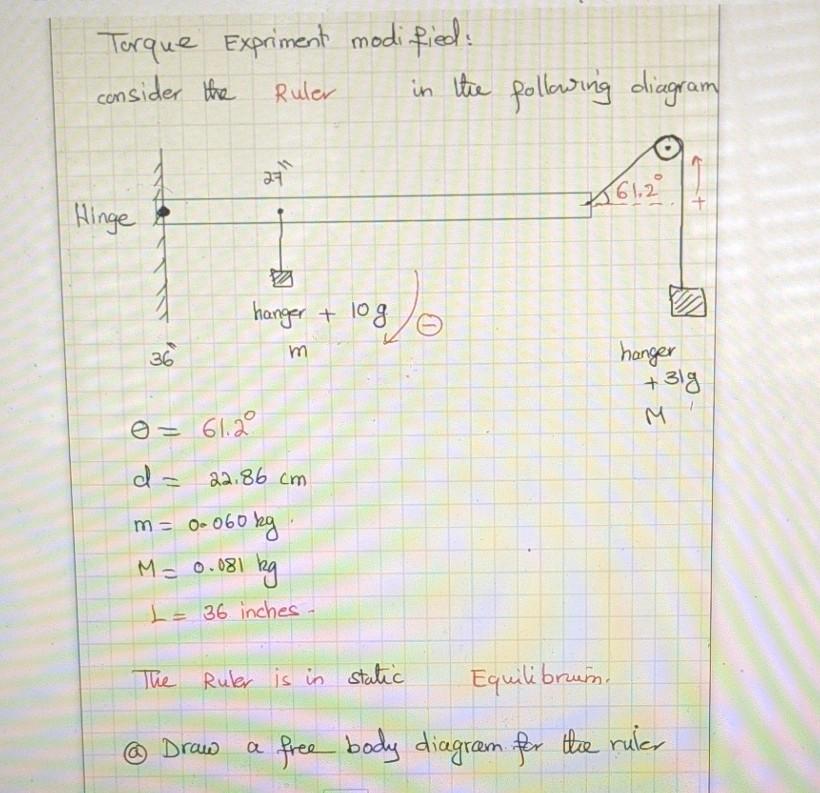 Torque Expriment modified:
consider the Ruler in the following diagram
27"
61.2°
+
Hinge
hanger + 10g
−
36"
m
hanger
+ 31g
M
θ = 61.2°
d = 22.86 cm
m = 0.060 kg.
M = 0.081 kg
L = 36 inches-
The Ruler is in static Equilibrum.
ⓐ Draw a free body diagram for the ruler